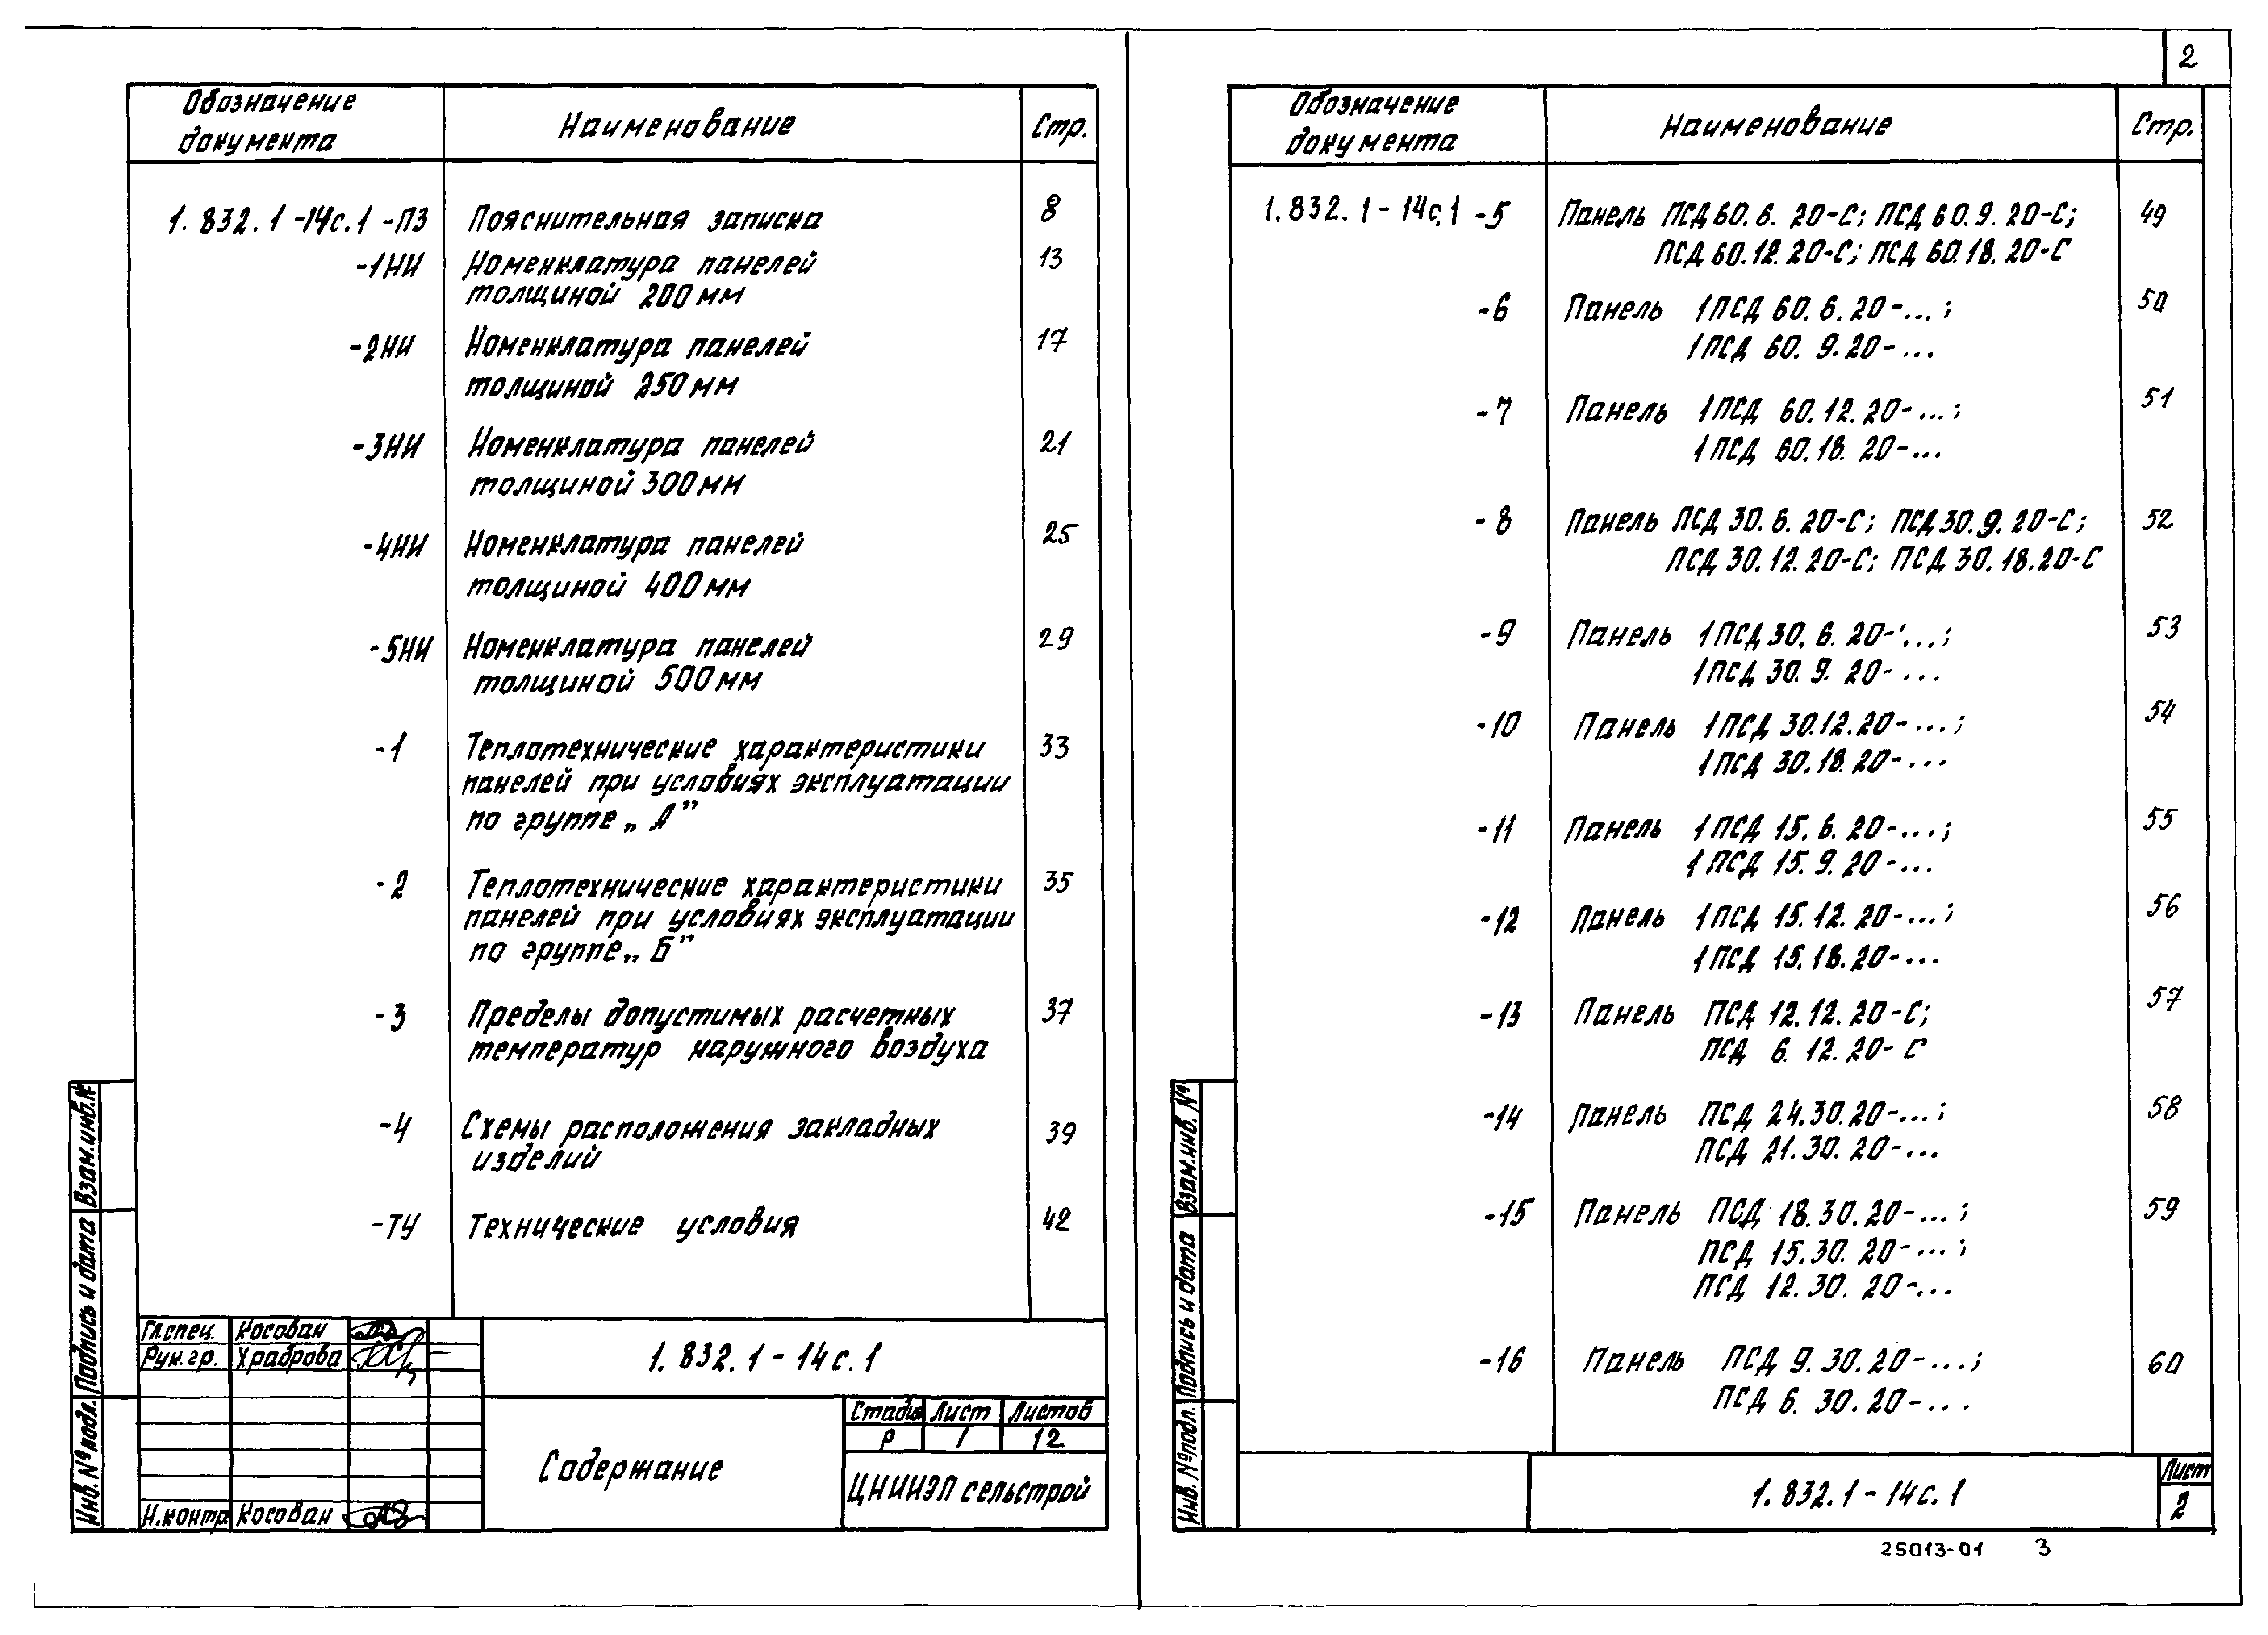 2
Обозначение документа Наименование Стр.
1.832.1-14с.1-ПЗ Пояснительная записка 8
-1НИ Номенклатура панелей 13
толщиной 200мм
-2НИ Номенклатура панелей 17
толщиной 250мм
-3НИ Номенклатура панелей 21
толщиной 300мм
-4НИ Номенклатура панелей 25
толщиной 400мм
-5НИ Номенклатура панелей 29
толщиной 500мм
-1 Теплотехнические характеристики 33
панелей при условиях эксплуатации
по группе „А”
-2 Теплотехнические характеристики 35
панелей при условиях эксплуатации
по группе „Б”
-3 Пределы допустимых расчетных 37
температур наружного воздуха
-4 Схемы расположения закладных 39
изделий
-ТУ Технические условия 42
Гл.спец. Косован
Рук.гр. Храброва
1.832.1-14с.1
Н.контр Косован
Содержание
Стадия Лист Листов
Р 1 12
ЦНИИЭПсельстрой
Взам.инв.№
Подпись и дата
Инв.№подл.
Обозначение документа Наименование Стр.
1.832.1-14с.1 -5 Панель ПСД60.6.20-С; ПСД60.9.20-С; 49
ПСД60.12.20-С; ПСД60.18.20-С
-6 Панель 1ПСД60.6.20-...; 50
1ПСД60.9.20-...
-7 Панель 1ПСД 60.12.20-...; 51
1ПСД 60.18.20-...
-8 Панель ПСД30.6.20-С; ПСД30.9.20-С; 52
ПСД30.12.20-С; ПСД30.18.20-С
-9 Панель 1ПСД30.6.20-...; 53
1ПСД30.9.20-...
-10 Панель 1ПСД30.12.20-...; 54
1ПСД 30.18.20-...
-11 Панель 1ПСД 15.6.20-...; 55
1ПСД 15.9.20-...
-12 Панель 1ПСД 15.12.20-...; 56
1ПСД 15.18.20-...
-13 Панель ПСД 12.12.20-С; 57
ПСД 6.12.20-С
-14 Панель ПСД 24.30.20-...; 58
ПСД 21.30.20-...
-15 Панель ПСД 18.30.20-...; 59
ПСД 15.30.20-...;
ПСД 12.30.20-...
-16 Панель ПСД 9.30.20-...; 60
ПСД 6.30.20-...
1.832.1-14с.1
Лист
2
Взам.инв.№
Подпись и дата
Инв.№подл.
25013-01 3